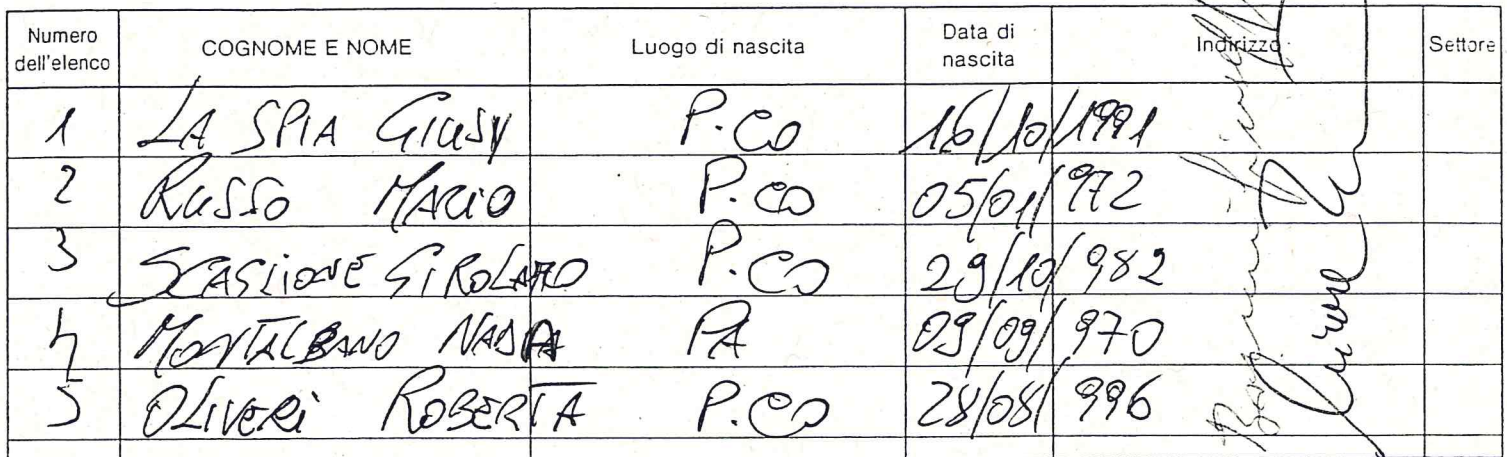 Numero dell'elenco COGNOME E NOME Luogo di nascita Data di nascita Indirizzo Settore
1 LA SPIA GIUSY P.CO 16/10/1991
2 RUSSO MARIO P.CO 05/01/972
3 SCAGLIONE GIROLAMO P.CO 29/10/982
4 MONTALBANO NADIA PA 09/09/970
5 OLIVERI ROBERTA P.CO 28/08/996